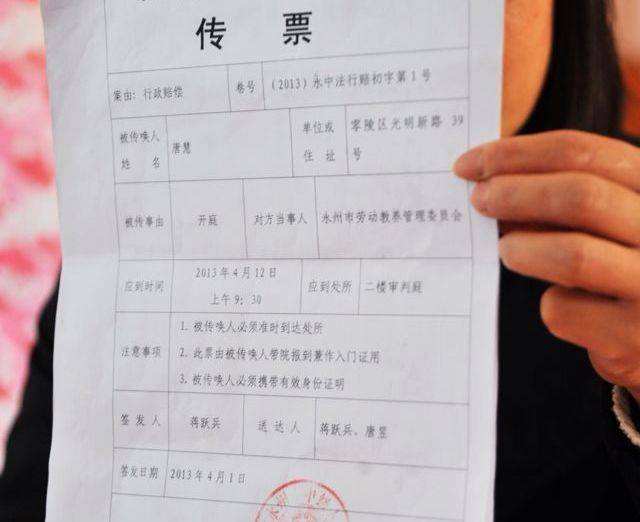 传票
案由：行政赔偿 卷号 （2013）永中法行赔初字第1号
被传唤人 唐慧 单位或 零陵区光明新路 39
姓名 住址 号
被传事由 开庭 对方当事人 永州市劳动教养管理委员会
应到时间 2013年4月12日 应到处所 二楼审判庭
上午9：30
1. 被传唤人必须准时到达处所
注意事项 2. 此票由被传唤人带院报到兼作入门证用
3. 被传唤人必须携带有效身份证明
签发人 蒋跃兵 送达人 蒋跃兵、唐昱
签发日期 2013年4月1日